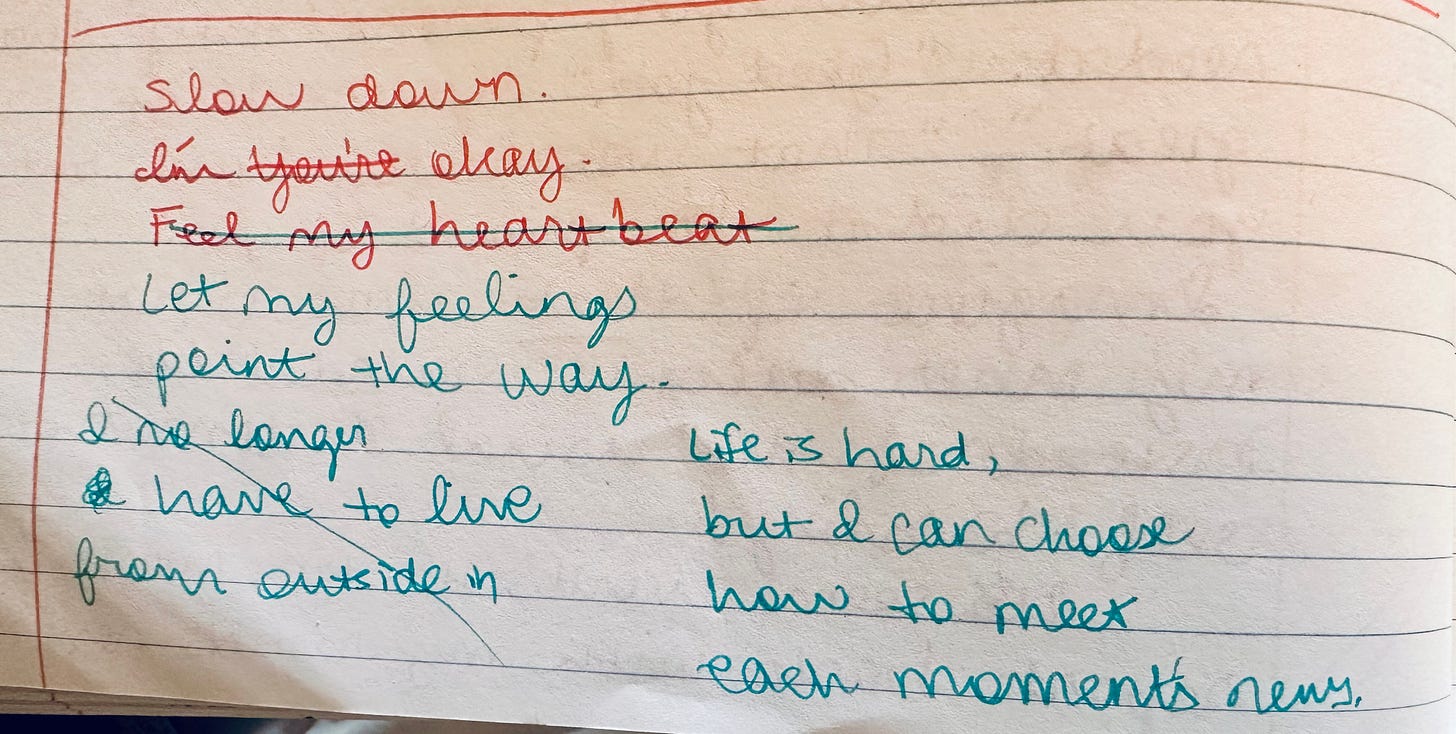 Slow down.
I'm you're okay.
Feel my heartbeat
Let my feelings
point the way.
I no longer
have to live
from outside in
Life is hard,
but I can choose
how to meet
each moment's news.